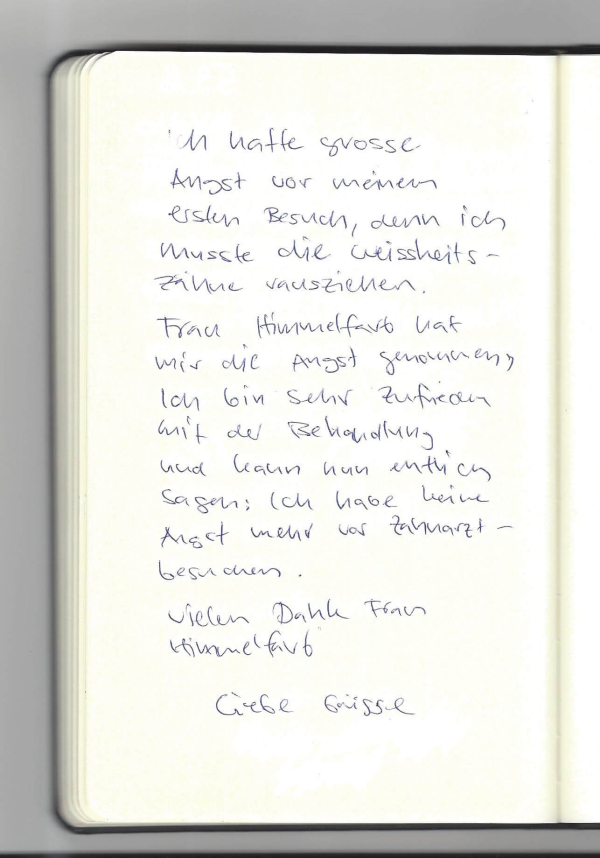 Ich hatte grosse
Angst vor meinem
ersten Besuch, denn ich
musste die weissheits-
zähne rausziehen.
Frau Himmelfarb hat
mir die Angst genommen,
Ich bin sehr zufrieden
mit der Behandlung
und kann nun entlich
sagen: Ich habe keine
Angst mehr vor Zahnarzt-
besuchen.
Vielen Dank Frau
Himmelfarb
Liebe Grüsse